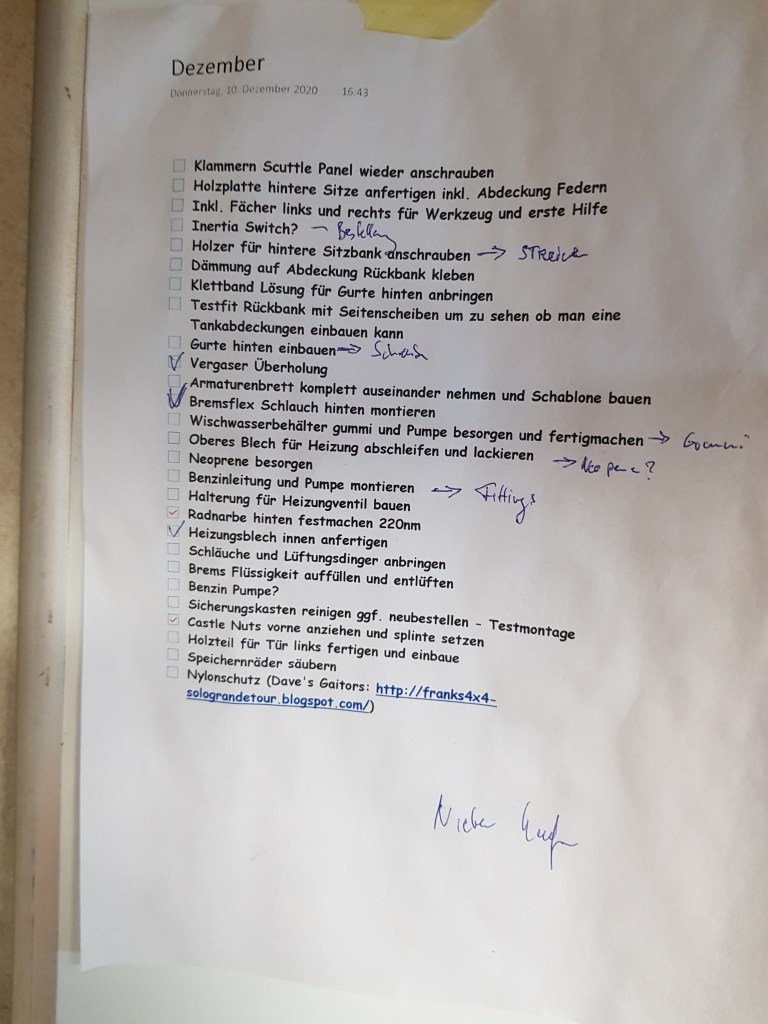 Dezember
Donnerstag, 10. Dezember 2020 16:43
Klammern Scuttle Panel wieder anschrauben
Holzplatte hintere Sitze anfertigen inkl. Abdeckung Federn
Inkl. Fächer links und rechts für Werkzeug und erste Hilfe
Inertia Switch? – Bestellen
Holzer für hintere Sitzbank anschrauben →
Dämmung auf Abdeckung Rückbank kleben
Klettband Lösung für Gurte hinten anbringen
Testfit Rückbank mit Seitenscheiben um zu sehen ob man eine
Tankabdeckungen einbauen kann
Gurte hinten einbauen →
Vergaser Überholung
Armaturenbrett komplett auseinander nehmen und Schablone bauen
Bremsflex Schlauch hinten montieren
Wischwasserbehälter gummi und Pumpe besorgen und fertigmachen → Gummi
Oberes Blech für Heizung abschleifen und lackieren → Neoprene?
Neoprene besorgen
Benzinleitung und Pumpe montieren → Fittings
Halterung für Heizungventil bauen
Radnarbe hinten festmachen 220nm
Heizungsblech innen anfertigen
Schläuche und Lüftungsdinger anbringen
Brems Flüssigkeit auffüllen und entlüften
Benzin Pumpe?
Sicherungskasten reinigen ggf. neubestellen - Testmontage
Castle Nuts vorne anziehen und splinte setzen
Holzteil für Tür links fertigen und einbaue
Speichernräder säubern
Nylonschutz (Dave's Gaitors: http://franks4x4-
solograndetour.blogspot.com/)